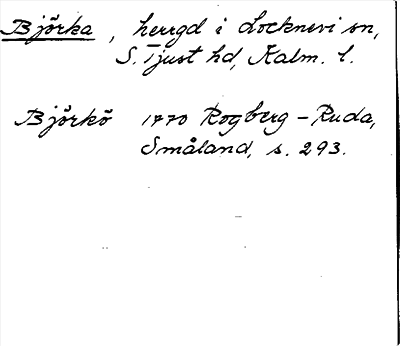 Björka, herrgd i Locknevi sn,
S. Tjust hd, Kalm. l.
Björkö 1770 Rogberg - Ruda,
Småland, s. 293.